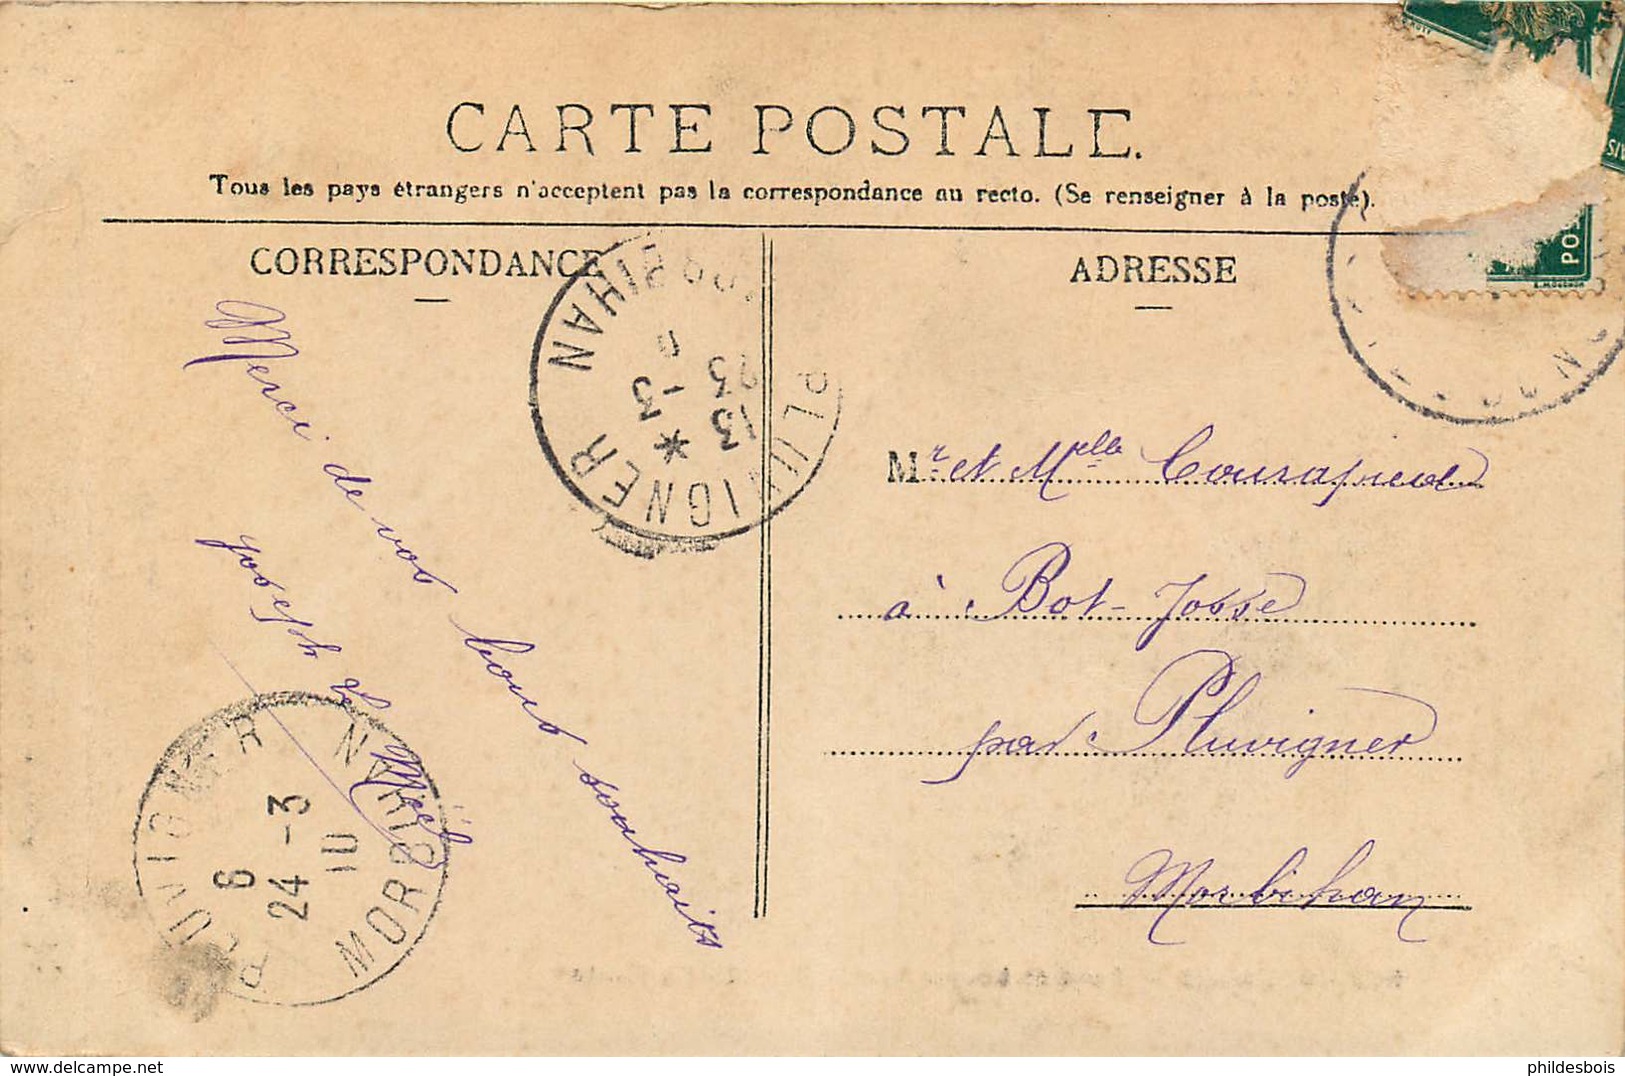 CARTE POSTALE.
Tous les pays étrangers n'acceptent pas la correspondance au recto. (Se renseigner à la poste).
CORRESPONDANCE
ADRESSE
Merci de vos bons souhaits
Joseph Le
Mr et Melle
à Bot-Josse
par Pluvigner
Morbihan
PLUVIGNER
MORBIHAN
13
3-3
PLUVIGNER
MORBIHAN
6
24-3
10
POS
phildesbois